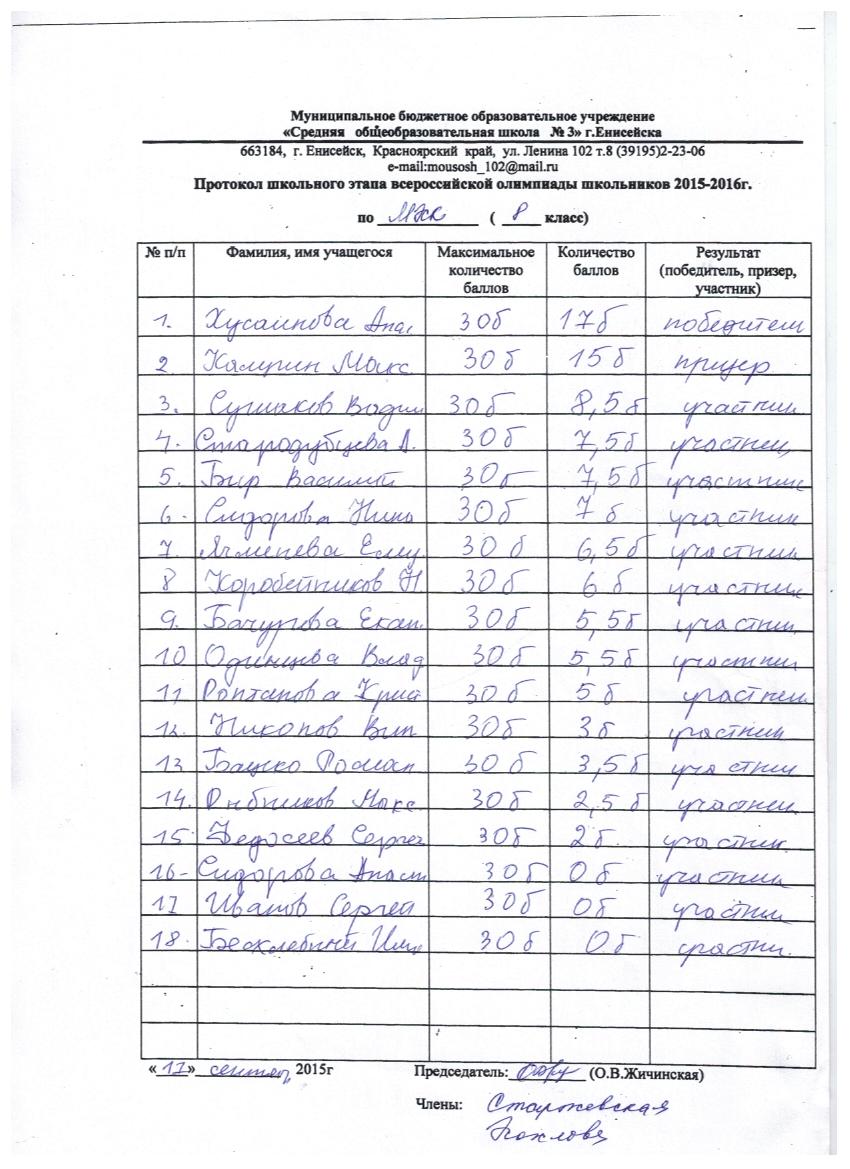 Муниципальное бюджетное образовательное учреждение
«Средняя общеобразовательная школа № 3» г.Енисейска
663184, г. Енисейск, Красноярский край, ул. Ленина 102 т.8 (39195)2-23-06
e-mail:mousosh_102@mail.ru
Протокол школьного этапа всероссийской олимпиады школьников 2015-2016г.
по МХК ( 8 класс)
№ п/п Фамилия, имя учащегося Максимальное количество баллов Количество баллов Результат (победитель, призер, участник)
1. Хусаинова Анас 30б 17б победитель
2 Макс 30б 15б призер
3. Сушаков Вадим 30б 8,5б участник
4. Стародубцева А. 30б 7,5б участник
5. Бир Василий 30б 7,5б участник
6. Сидорова Нина 30б 7б участник
7. Ячменева 30б 6,5б участник
8 Коробейников Н 30б 6б участник
9. Екат. 30б 5,5б участник
10 Одинцова Влад 30б 5,5б участник
11 Крист 30б 5б участник
12. Никонов 30б 3б участник
13 Бацко Роман 30б 3,5б участник
14. Макс. 30б 2,5б участник
15. Федосеев Сергей 30б 2б участник
16. Сидорова Анаст 30б 0б участник
17 Иванов Сергей 30б 0б участник
18. 30б 0б участник
«17» сентяб 2015г Председатель: (О.В.Жичинская)
Члены: Старжевская